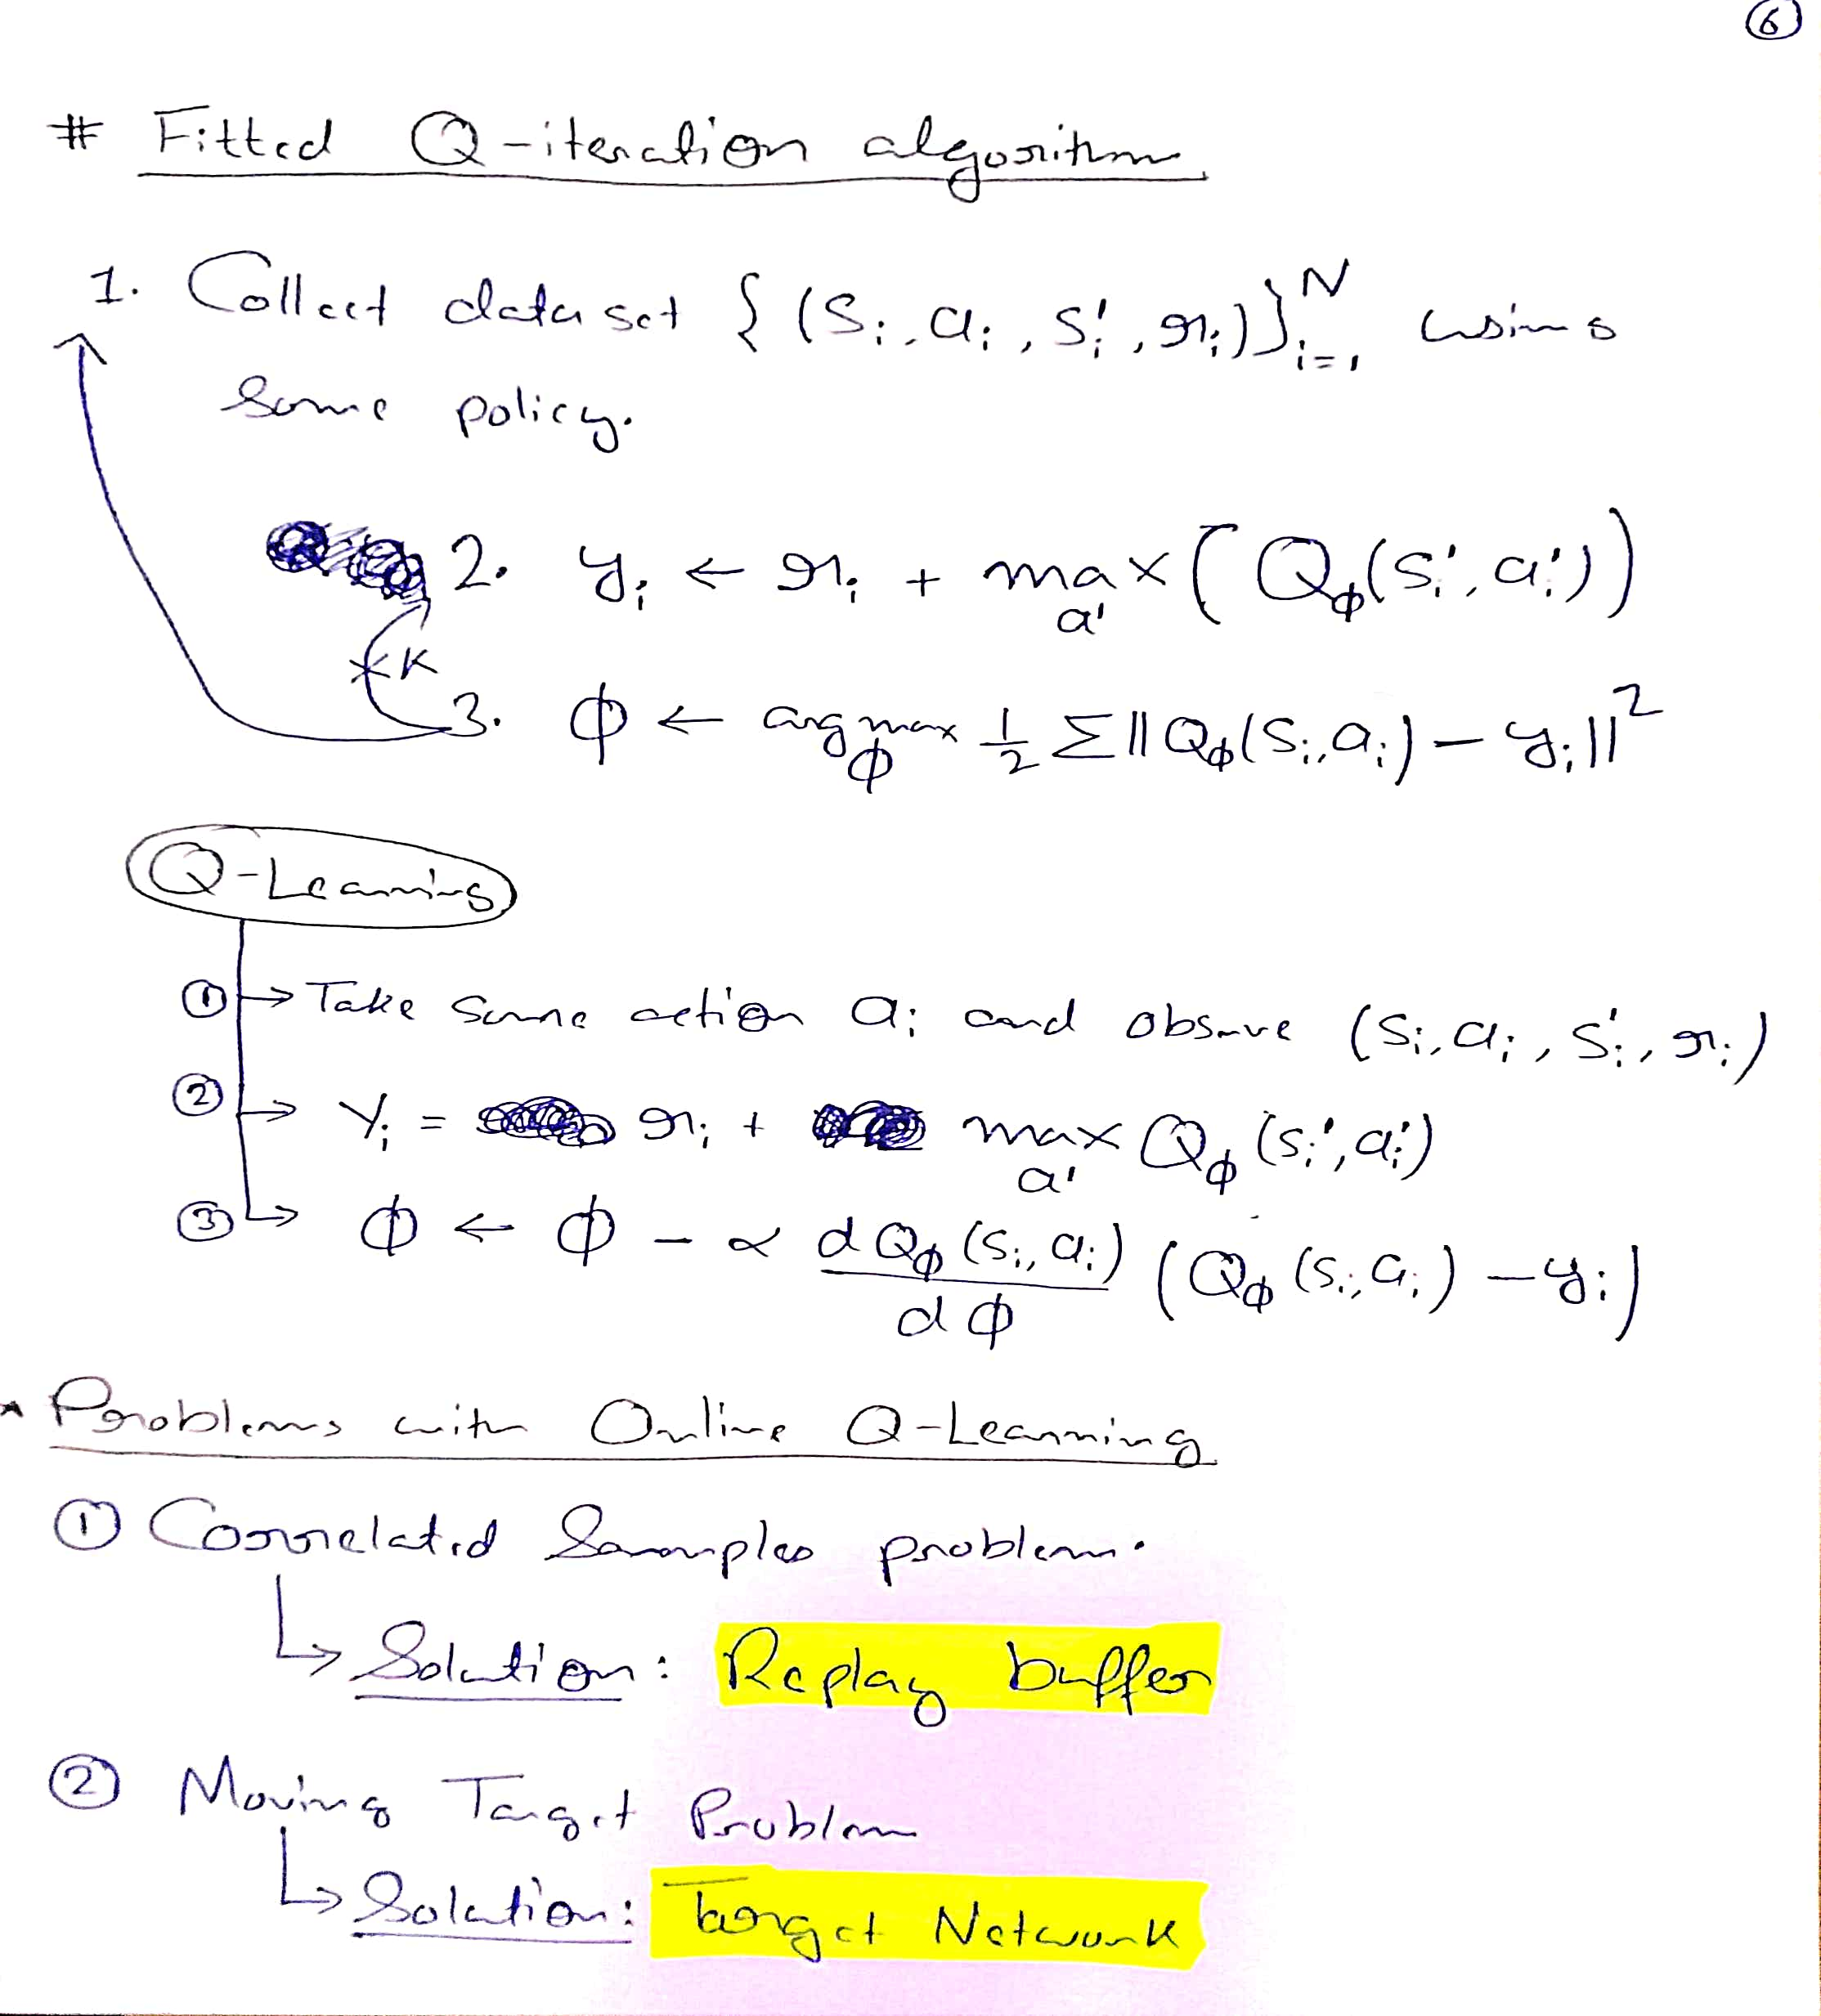 6
# Fitted Q-iteration algorithm
1. Collect dataset {(Si, ai, Si', ri)}^N_{i=1} using
some policy.
2. yi ← ri + max_{a'} (Qϕ(Si', ai'))
×K
3. ϕ ← argmax_ϕ 1/2 Σ||Qϕ(Si, ai) - yi||²
Q-Learning
① → Take some action ai and observe (Si, ai, Si', ri)
② → Yi = ri + max_{a'} Qϕ(Si', ai')
③ → ϕ ← ϕ - α dQϕ(Si, ai)/dϕ (Qϕ(Si, ai) - yi)
* Problems with Online Q-Learning
① Correlated Samples problem.
↳ Solution: Replay buffer
② Moving Target Problem
↳ Solution: Target Network